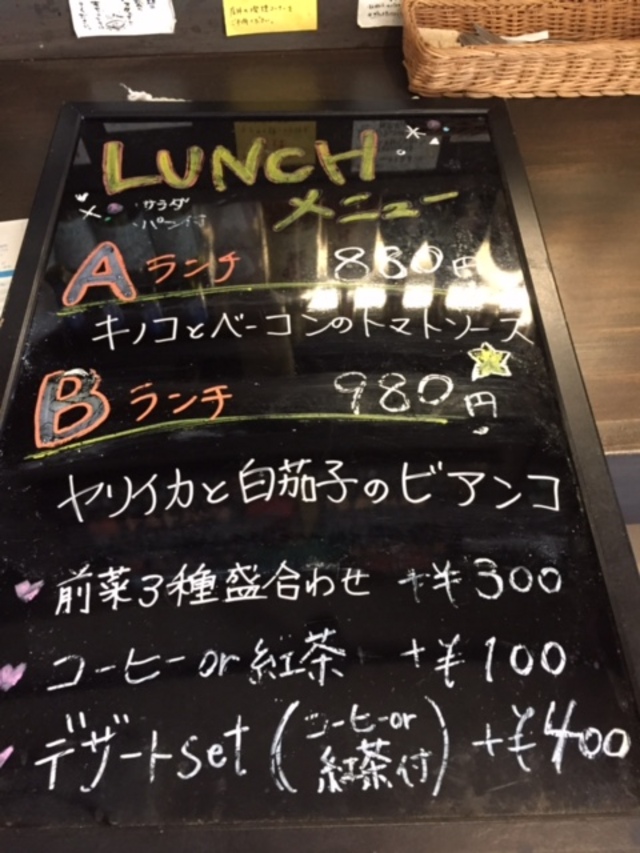 LUNCH
メニュー
サラダ
パン付
Aランチ 880円
キノコとベーコンのトマトソース
Bランチ 980円
ヤリイカと白茄子のビアンコ
前菜3種盛合わせ +¥300
コーヒーor紅茶 +¥100
デザートset (コーヒーor紅茶付) +¥400